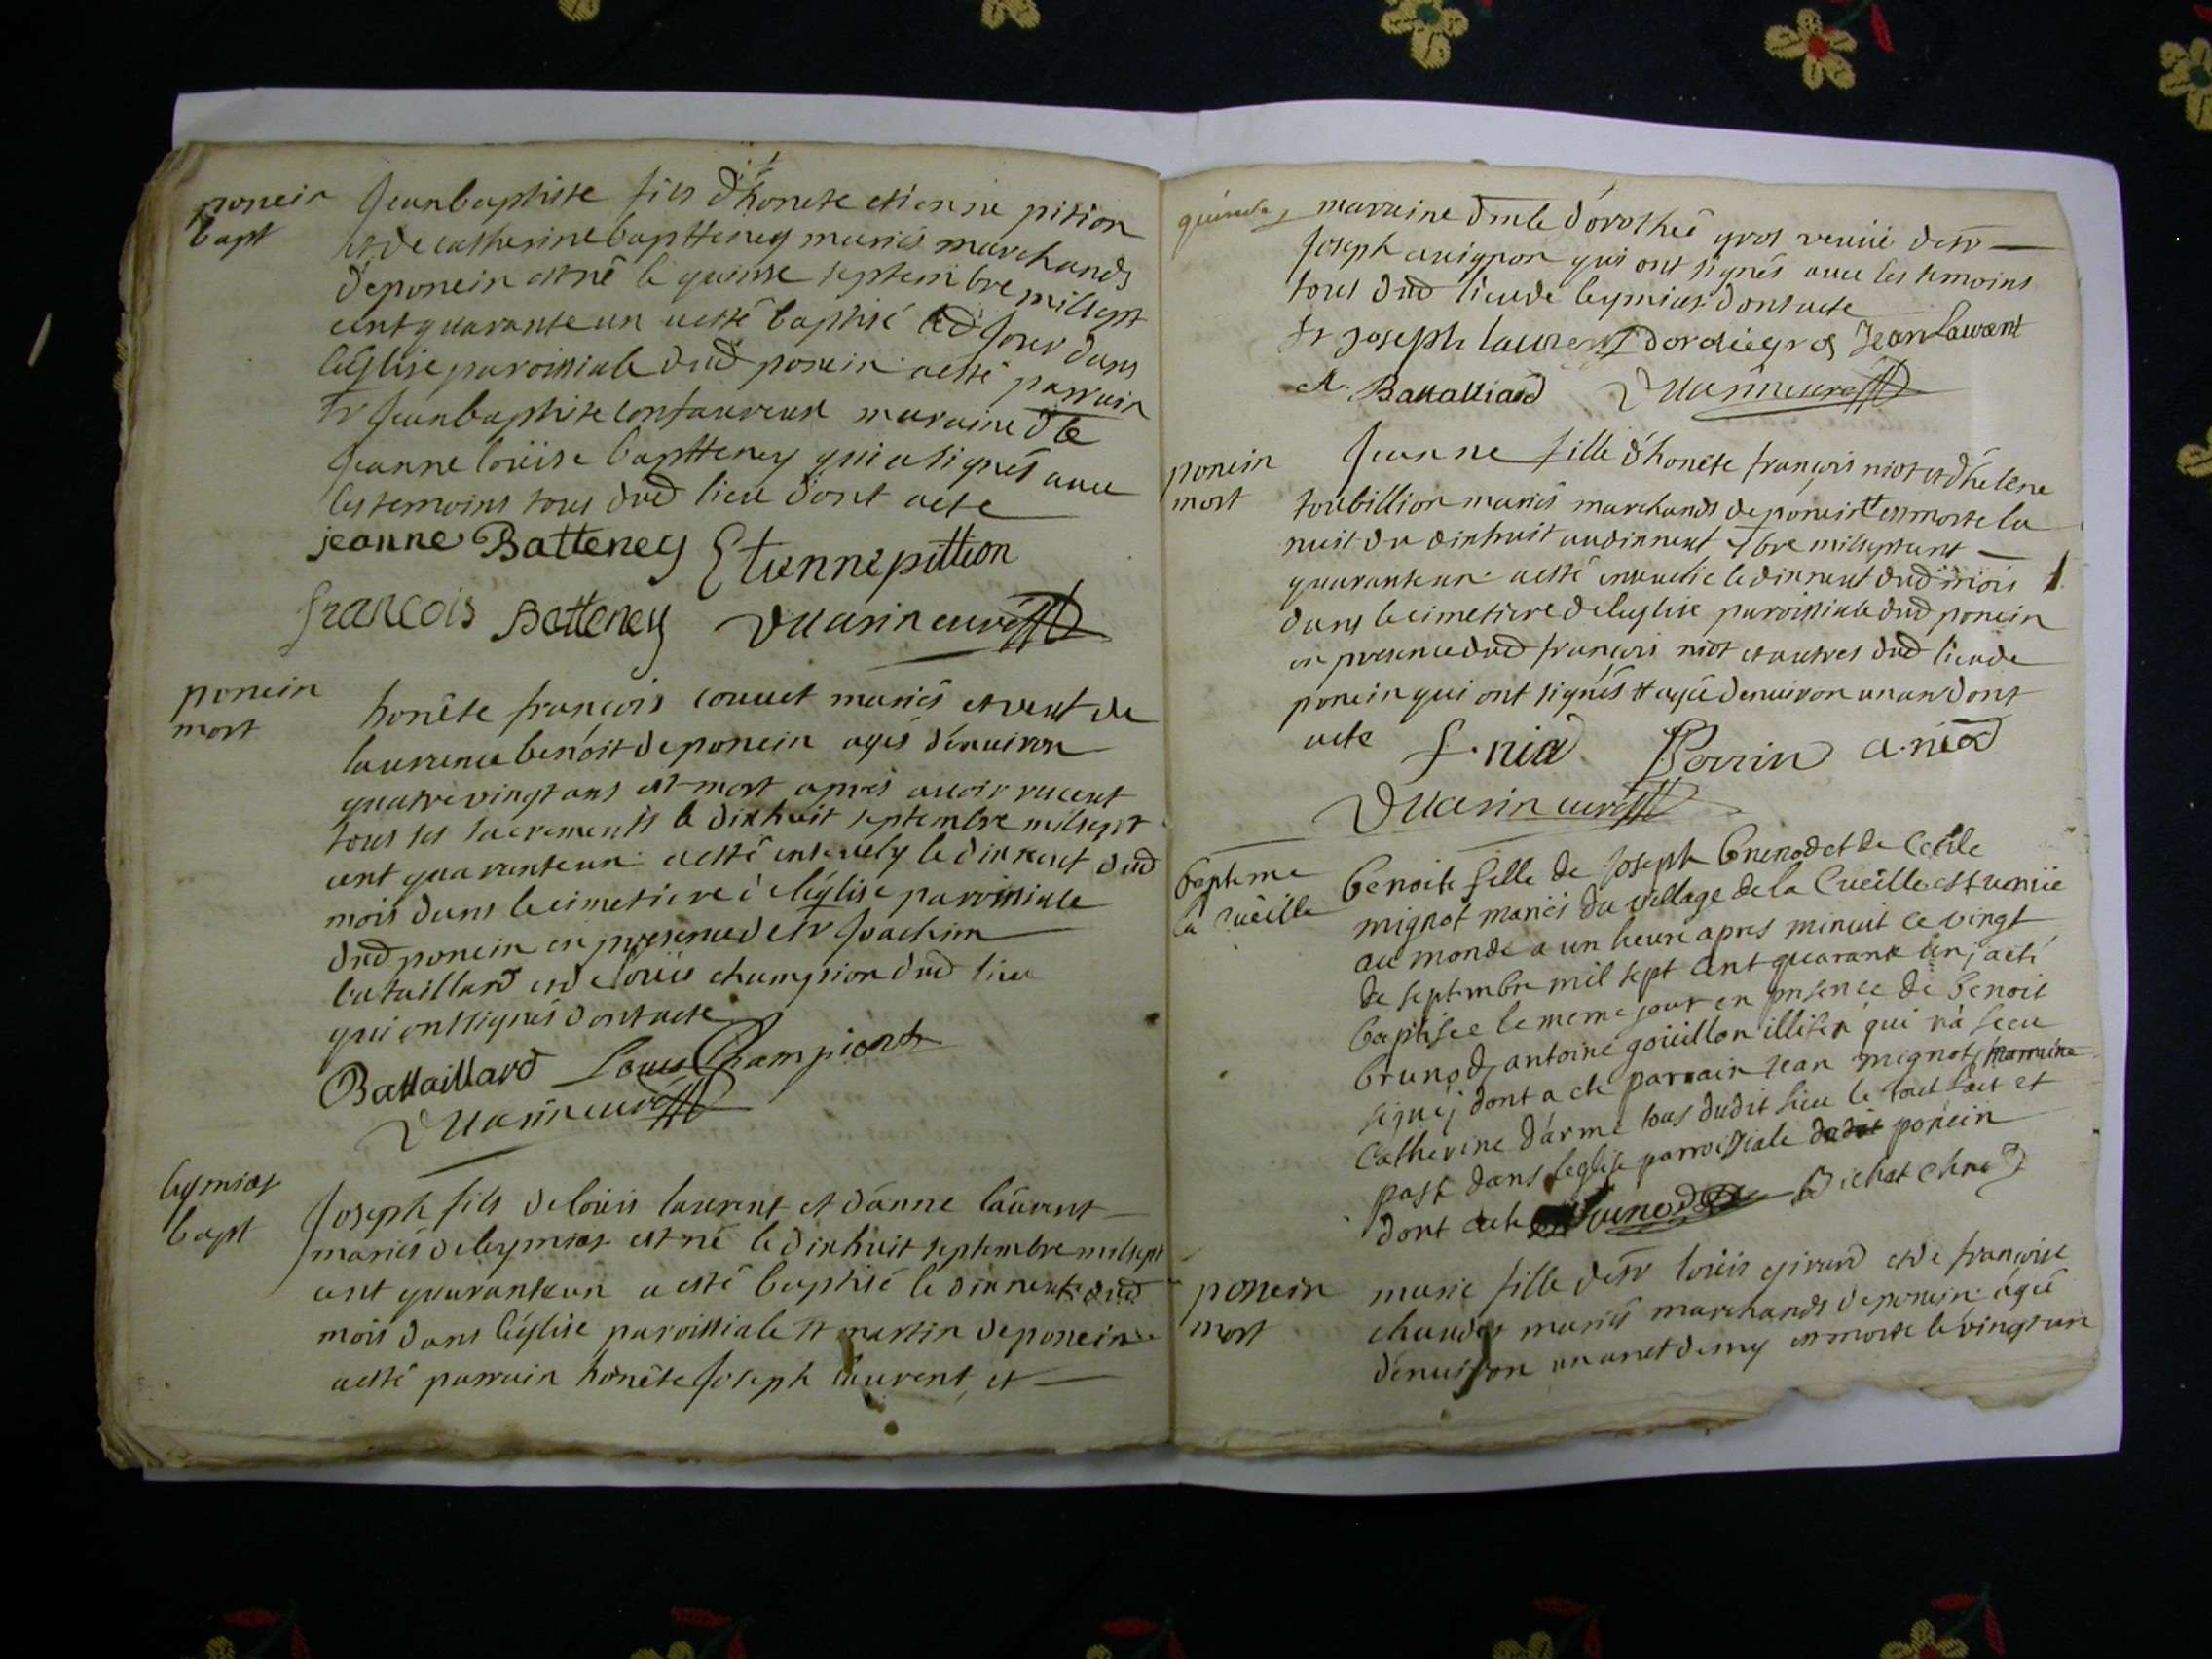 ponein
bapt
Jeanbaptiste fils d'honete etienne pition
et de catherine baptteney mariés marchands
deponein est né le quinse septembre millsept
cent quarante un a esté baptisé led jour dans
l'église paroissiale dud ponein a esté parrain
Sr Jeanbaptiste maraine dlle
Jeanne loüise baptteney qui a signés avec
les temoins tous dud lieu dont acte
jeanne Batteney Etienne pittion
francois Batteney curé
ponein
mort
honête françois couuet mariés et veuf de
laurence benoit de ponein agés d'enuiron
quatre vingt ans est mort apres auoir receut
tous ses sacrements le dixhuit septembre milsept
cent quarente un a esté enseuely le dixneuf dud
mois dans le cimetiere de l'église parroissiale
dud ponein en presence de Sr Joachim
bataillard et de loüis champion dud lieu
qui ont signés dont acte
Battaillard Louis Championt
curé
leymiat
bapt
Joseph fils de loüis laurent et d'anne laurent
mariés de leymiat est né le dixhuit septembre milsept
cent quarante un a esté baptisé le dixneuf dud
mois dans l'église paroissiale St martin de ponein
a esté parrain honête Joseph laurent et
maraine dmlle dorothée gros veuue de Sr
Joseph auignon qui ont signés auec les temoins
tous dud lieu de leymiat dont acte
Sr Joseph laurent dorotéegros Jean Laurent
Battalliard curé
ponein
mort
Jeanne fille d'honête françois niot et d'helene
toubillion mariés marchands de ponein tt est morte la
nuit du dixhuit au dixneuf 7bre milseptcent
quarante un a esté enseuelie le dixneuf dud mois
dans le cimetiere de l'eglise paroissiale dud ponein
en presence dud françois niot et autres dud lieu de
ponein qui ont signés tt agée denuiron un an dont
acte f. niod Perrin a. niod
curé
bapteme
la cueille
benoite fille de Joseph brunod et de Cecile
mignot mariés du village de la Cueille est venüe
au monde a un heure apres minuit ce vingt
de septembre mil sept cent quarante un; a eté
baptisée le meme jour en presence de benoit
brunod, antoine goüillon illiteré qui n'a sceu
signé; dont a eté parrain Jean mignot, marraine
Catherine darme tous dudit lieu le tout fait et
passé dans leglise parroissiale ponein
dont acte brunod Bichat
ponein
mort
marie fille de Sr loüis girard et de françoise
mariés marchands de ponein agée
d'enuiron un an et demy est morte le vingt un